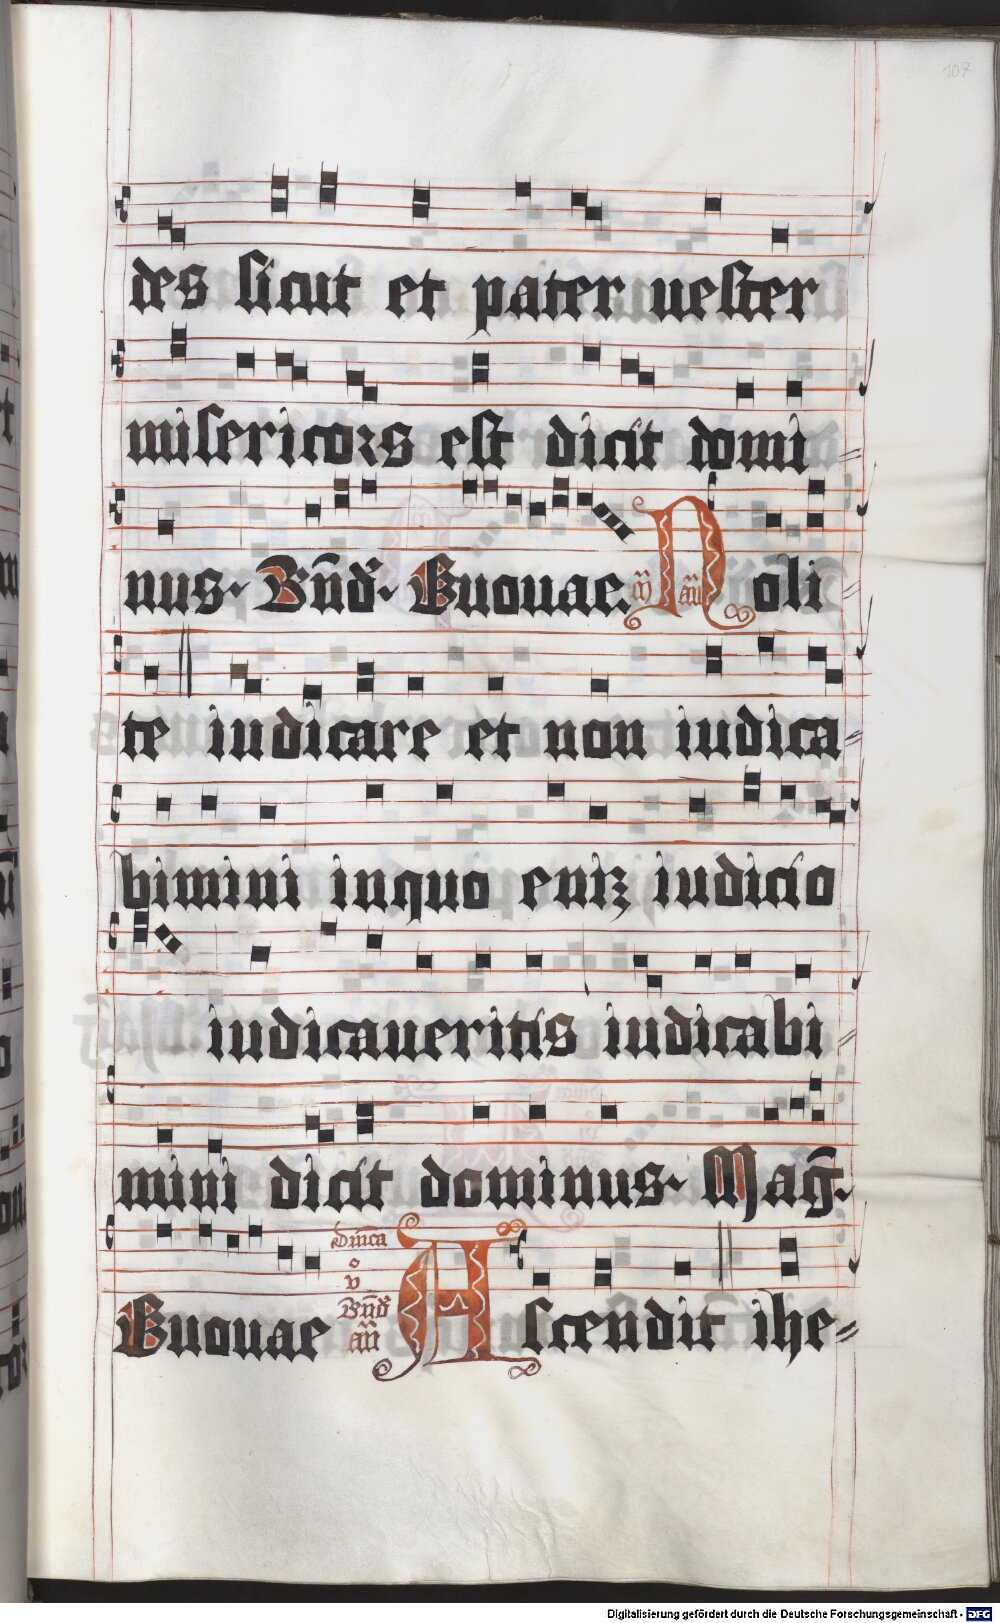 107
des sicut et pater uester
misericors est dicit domi
nus. Bn̄d. Euouae. an̄ Noli
te iudicare et non iudica
bimini inquo eniz iudicio
iudicaueritis iudicabi
mini dicit dominus. Mag̅.
Euouae Ascendit ihe
Dn̄ica
o
v
Bn̄d
an̄
Digitalisierung gefördert durch die Deutsche Forschungsgemeinschaft - DFG